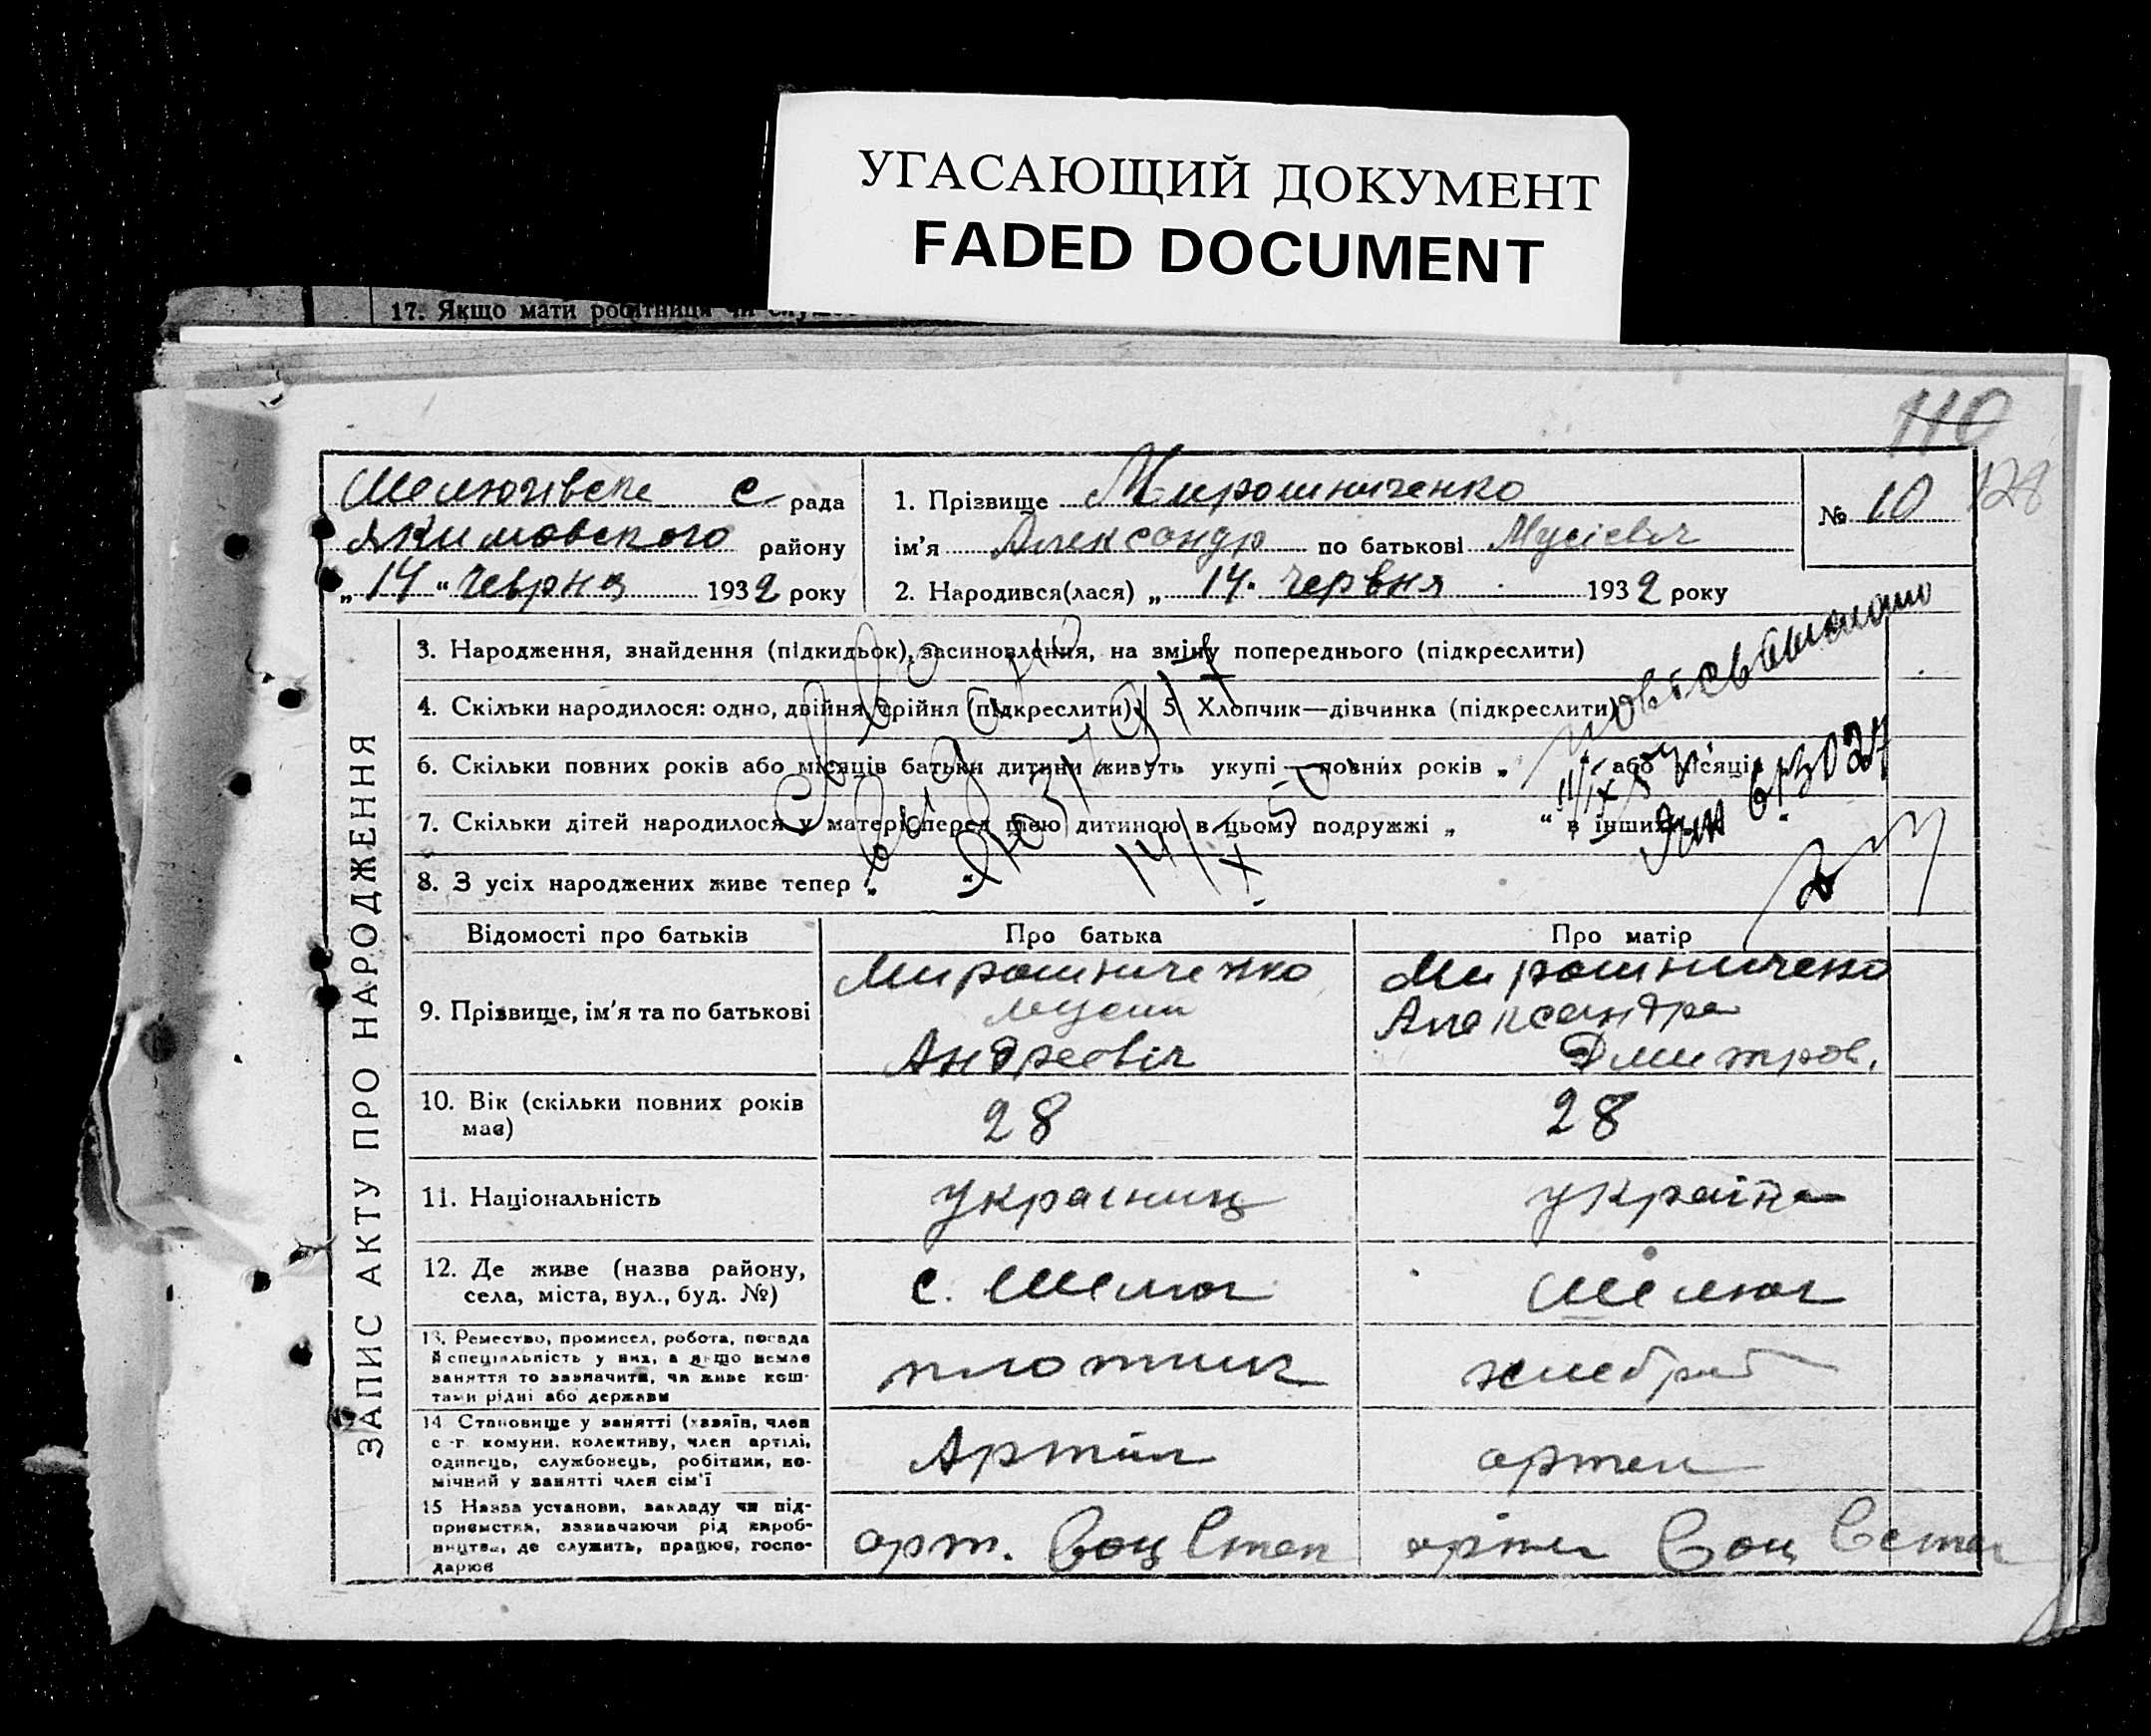 УГАСАЮЩИЙ ДОКУМЕНТ
FADED DOCUMENT
17. Якщо мати робітниця чи
110
128
Шелюгівске с. рада
Якимовського району
„14" Чеврня 1932 року
1. Прізвище Мирошниченко
ім'я Александр по батькові Мусієвич
2. Народився(лася) „14. червня 1932 року
№ 10
ЗАПИС АКТУ ПРО НАРОДЖЕННЯ
3. Народження, знайдення (підкидьок), засиновлення, на зміну попереднього (підкреслити)
4. Скільки народилося: одно, двійня, трійня (підкреслити) 5. Хлопчик—дівчинка (підкреслити)
6. Скільки повних років або місяців батьки дитини живуть укупі — повних років „ або місяців
7. Скільки дітей народилося у матері перед цією дитиною в цьому подружжі „ “ в інших
8. З усіх народжених живе тепер „ “
Відомості про батьків Про батька Про матір
9. Прізвище, ім'я та по батькові
Мирошниченко
Мусий
Андреевіч
Мирошниченко
Александра
Дмитров.
10. Вік (скільки повних років
має)
28
28
11. Національність
Украиниц
україна
12. Де живе (назва району,
села, міста, вул., буд. №)
с. Шелюг
Шелюг
13. Ремество, промисел, робота, посада
й спеціяльність у них, а якщо немає
заняття то зазначити, чи живе кош-
тами рідні або держави
плотник
хлеброб
14. Становище у занятті (хазяїн, член
с.-г. комуни, колективу, член артілі,
одинець, службовець, робітник, по-
мічний у занятті член сім'ї
Артіл
артел
15 Назва установи, закладу чи під-
приємства, зазначаючи рід вироб-
ництва, де служить, працює, госпо-
дарює
арт. Соц Степ
артел Соц Степ